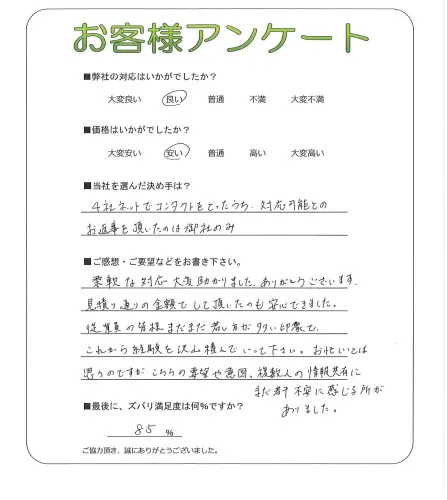 お客様アンケート
■弊社の対応はいかがでしたか？
大変良い 良い 普通 不満 大変不満
■価格はいかがでしたか？
大変安い 安い 普通 高い 大変高い
■当社を選んだ決め手は？
4社ネットでコンタクトをとったうち、対応可能との
お返事を頂いたのは御社のみ
■ご感想・ご要望などをお書き下さい。
柔軟な対応大変助かりました。ありがとうございます。
見積り通りの金額でして頂いたのも安心できました。
従業員の皆様まだまだ若い方が多い印象で、
これから経験を沢山積んでいって下さい。お忙しいとは
思うのですが、こちらの要望や意図、複数人の情報共有に
まだ若干不安に感じる所が
ありました。
■最後に、ズバリ満足度は何%ですか？
85 %
ご協力頂き、誠にありがとうございました。